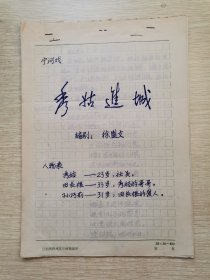 宁河戏
秀姑进城
编剧：徐盛文
人物表
秀姑——23岁，社员。
田长根——33岁，秀姑的哥哥。
孙巧莉——31岁，田长根的爱人。